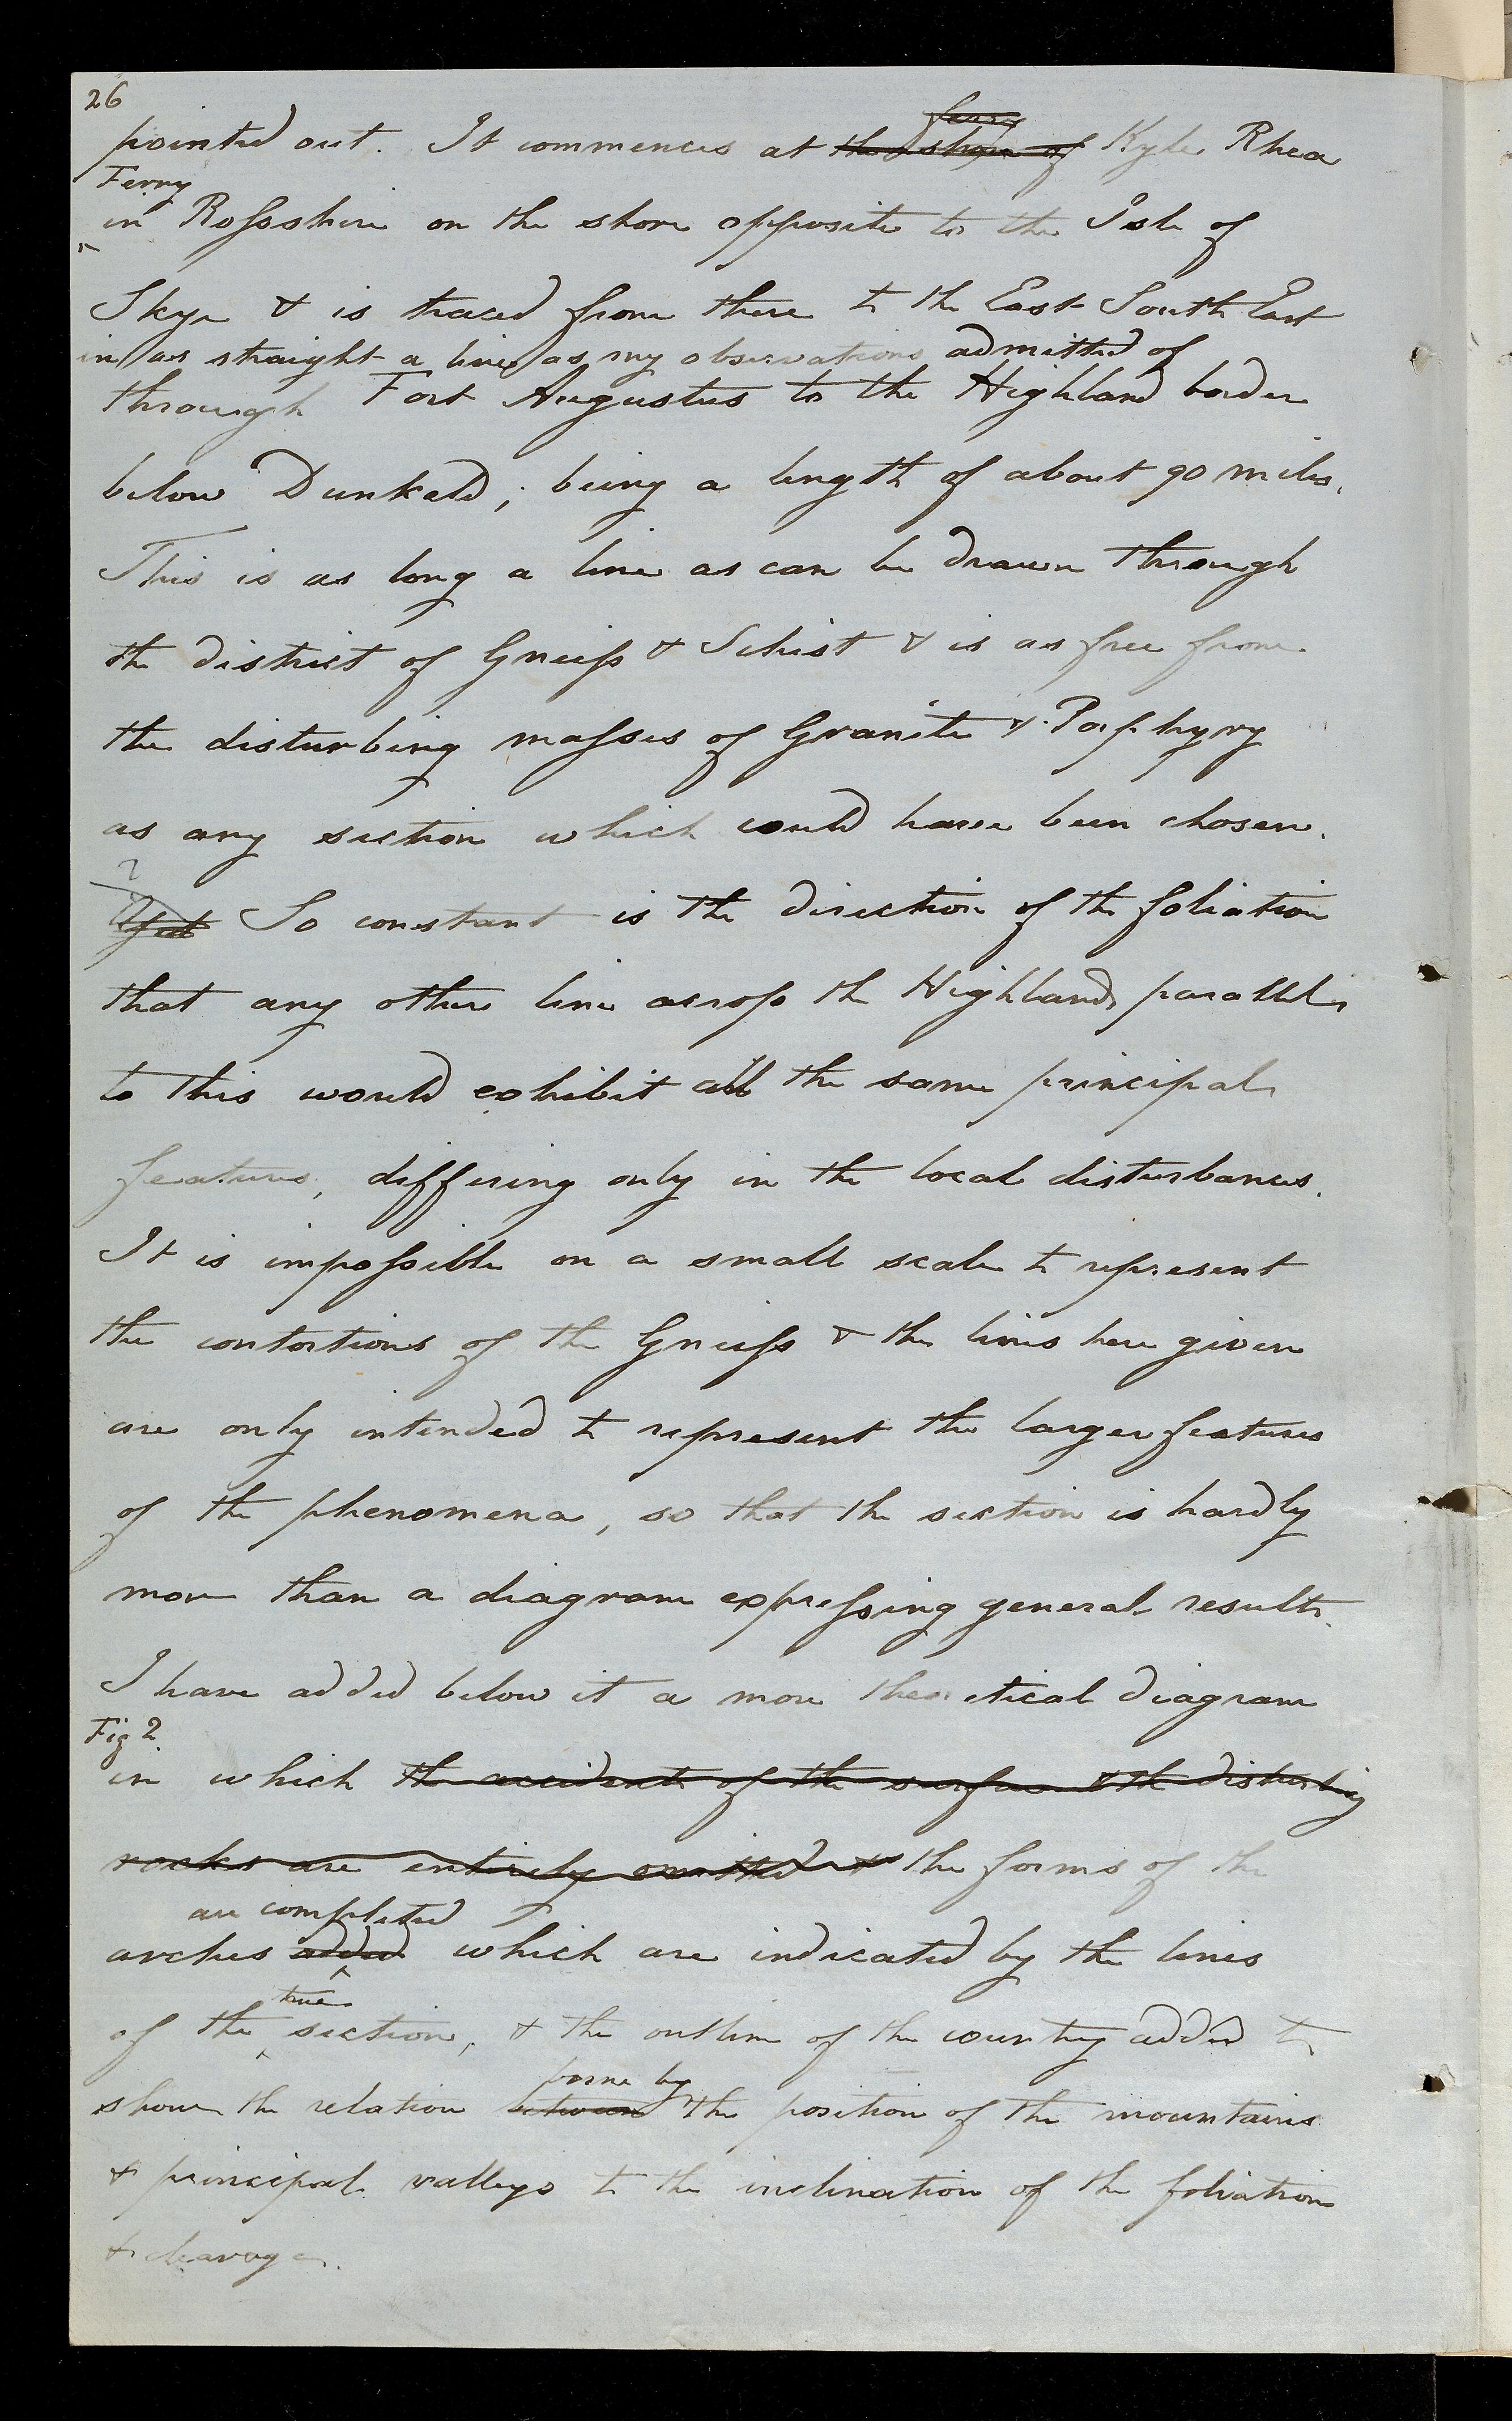 26
pointed out. It commences at the shore of ferry Kyle Rhea
Ferry
in Rossshire on the shore opposite to the Isle of
Skye & is traced from there to the East South East
in as straight a line as my observations admitted of
through Fort Augustus to the Highland border
below Dunkeld; being a length of about 90 miles.
This is as long a line as can be drawn through
the district of Gneiss & Schist & is as free from
the disturbing masses of Granite & Porphyry
as any section which could have been chosen.
So constant is the direction of the foliation
that any other line across the Highlands parallel
to this would exhibit all the same principal
features, differing only in the local disturbances.
It is impossible on a small scale to represent
the contortions of the Gneiss & the lines here given
are only intended to represent the larger features
of the phenomena, so that the section is hardly
more than a diagram expressing general results.
I have added below it a more theoretical diagram
Fig 2.
in which the accidents of the surface & the disturbing
rocks are entirely omitted & the forms of the
are completed
arches added which are indicated by the lines
true
of the section, & the outline of the country added to
borne by
show the relation between the position of the mountains
& principal valleys to the inclination of the foliation
& cleavage.